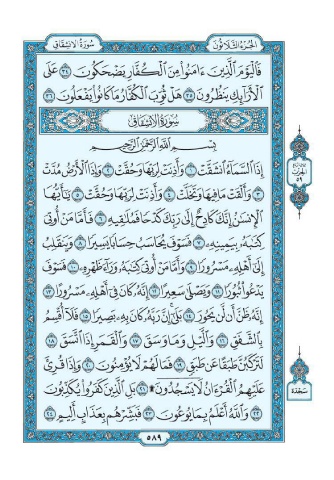 سُورَةُ الانشِقَاقِ الجُزْءُ الثَّلَاثُونَ
فَالْيَوْمَ الَّذِينَ ءَامَنُوا مِنَ الْكُفَّارِ يَضْحَكُونَ ٣٤ عَلَى
الْأَرَائِكِ يَنظُرُونَ ٣٥ هَلْ ثُوِّبَ الْكُفَّارُ مَا كَانُوا يَفْعَلُونَ ٣٦
سُورَةُ الانشِقَاقِ
بِسْمِ اللَّهِ الرَّحْمَٰنِ الرَّحِيمِ
إِذَا السَّمَاءُ انشَقَّتْ ١ وَأَذِنَتْ لِرَبِّهَا وَحُقَّتْ ٢ وَإِذَا الْأَرْضُ مُدَّتْ
٣ وَأَلْقَتْ مَا فِيهَا وَتَخَلَّتْ ٤ وَأَذِنَتْ لِرَبِّهَا وَحُقَّتْ ٥ يَا أَيُّهَا
الْإِنسَانُ إِنَّكَ كَادِحٌ إِلَىٰ رَبِّكَ كَدْحًا فَمُلَاقِيهِ ٦ فَأَمَّا مَنْ أُوتِيَ
كِتَابَهُ بِيَمِينِهِ ٧ فَسَوْفَ يُحَاسَبُ حِسَابًا يَسِيرًا ٨ وَيَنقَلِبُ
إِلَىٰ أَهْلِهِ مَسْرُورًا ٩ وَأَمَّا مَنْ أُوتِيَ كِتَابَهُ وَرَاءَ ظَهْرِهِ ١٠ فَسَوْفَ
يَدْعُو ثُبُورًا ١١ وَيَصْلَىٰ سَعِيرًا ١٢ إِنَّهُ كَانَ فِي أَهْلِهِ مَسْرُورًا ١٣
إِنَّهُ ظَنَّ أَن لَّن يَحُورَ ١٤ بَلَىٰ إِنَّ رَبَّهُ كَانَ بِهِ بَصِيرًا ١٥ فَلَا أُقْسِمُ
بِالشَّفَقِ ١٦ وَاللَّيْلِ وَمَا وَسَقَ ١٧ وَالْقَمَرِ إِذَا اتَّسَقَ ١٨
لَتَرْكَبُنَّ طَبَقًا عَن طَبَقٍ ١٩ فَمَا لَهُمْ لَا يُؤْمِنُونَ ٢٠ وَإِذَا قُرِئَ
عَلَيْهِمُ الْقُرْءَانُ لَا يَسْجُدُونَ ۩ ٢١ بَلِ الَّذِينَ كَفَرُوا يُكَذِّبُونَ
٢٢ وَاللَّهُ أَعْلَمُ بِمَا يُوعُونَ ٢٣ فَبَشِّرْهُم بِعَذَابٍ أَلِيمٍ ٢٤
الحِزْب
٥٩
سَجْدَة
٥٨٩